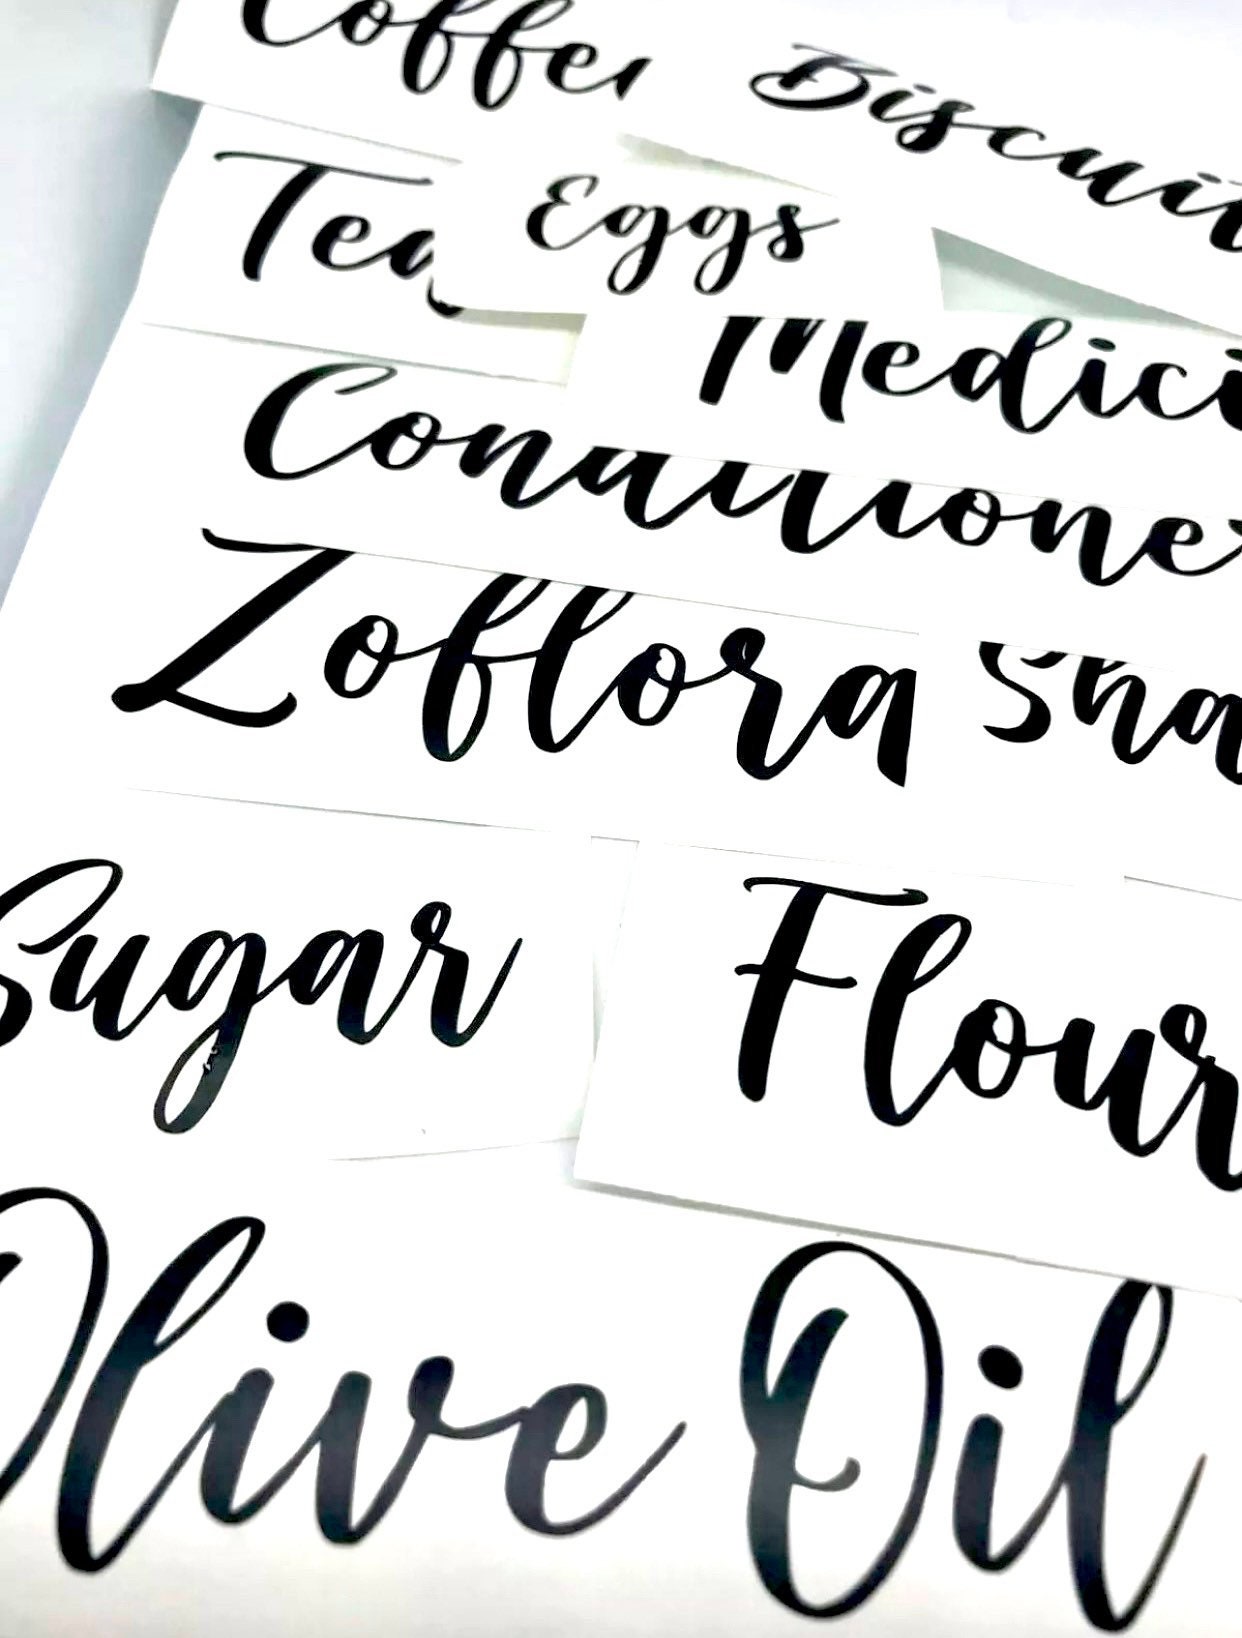 Coffe Biscuit
Tea Eggs
Medici
Conditione
Zoflora Sha
Sugar Flour
Olive Oil